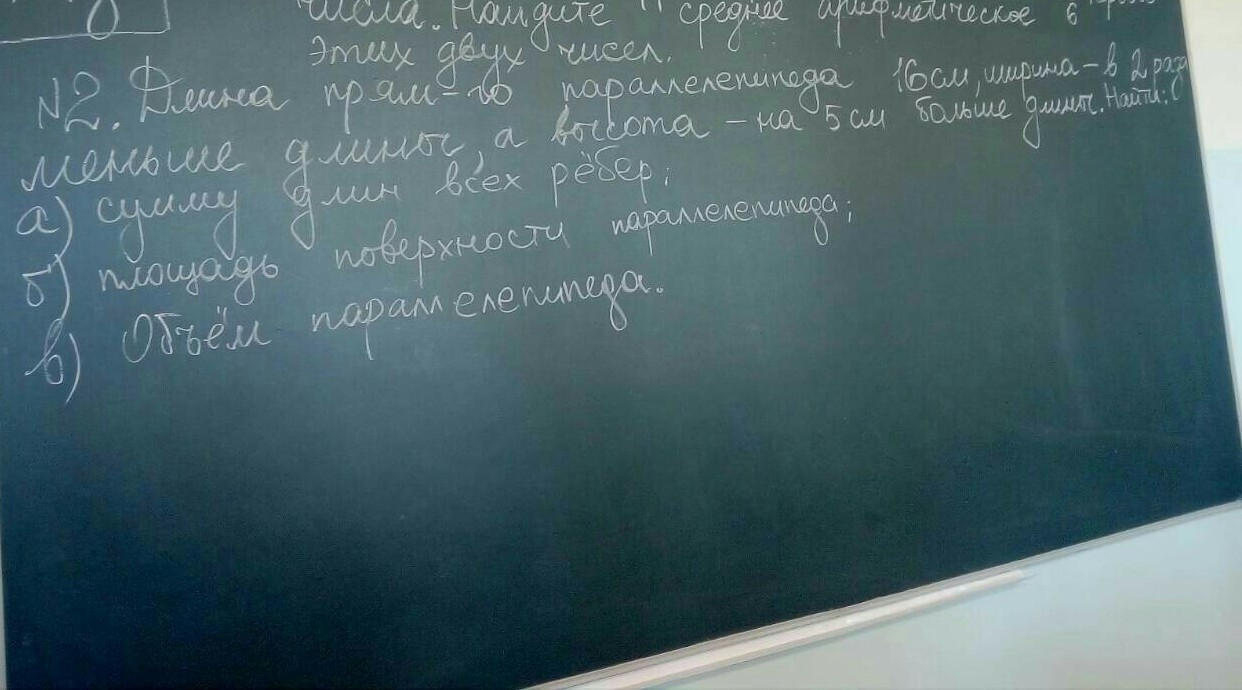 числа. Найдите среднее арифметическое
этих двух чисел.
N2. Длина прям-го параллелепипеда 16см, ширина - в 2 раза
меньше длины, а высота - на 5 см больше длины. Найти:
а) сумму длин всех рёбер;
б) площадь поверхности параллелепипеда;
в) Объём параллелепипеда.